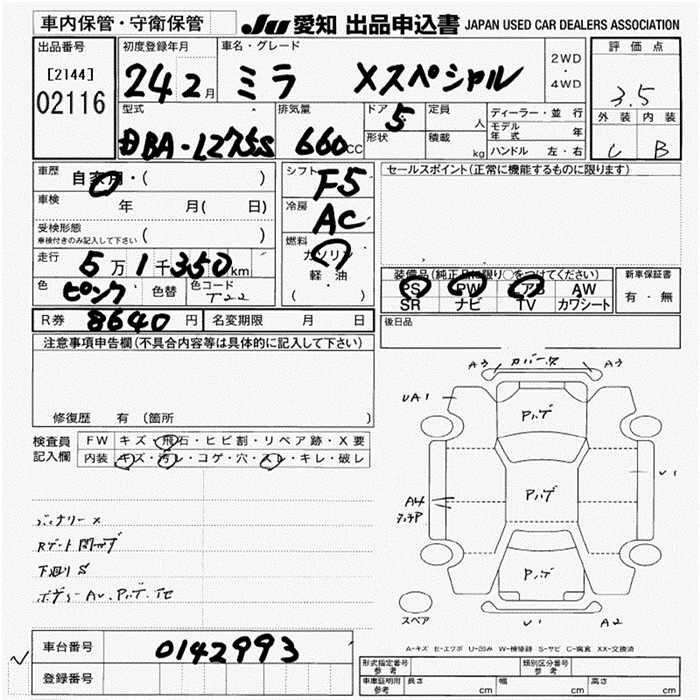 車内保管・守衛保管 JU 愛知 出品申込書 JAPAN USED CAR DEALERS ASSOCIATION
出品番号
[2144]
02116
初度登録年月
24 2月
車名・グレード
ミラ Xスペシャル
2WD
・
4WD
評価点
3.5
外装 内装
C B
型式
DBA-L275S
排気量
660cc
ドア
5
形状
定員
人
積載
kg
ディーラー・並行
モデル年式 年
ハンドル 左・右
車歴
自家用・( )
車検
年 月( 日)
受検形態
車検付きのみ記入して下さい ( )
走行
5万1千350km
色
ピンク
色替
色コード
T22
シフト
F5
冷房
AC
燃料
ガソリン
軽・油
( )
セールスポイント(正常に機能するものに限ります)
装備品(純正品に限り○をつけてください)
PS PW アB AW
SR ナビ TV カワシート
新車保証書
有・無
R券 8640円 名変期限 月 日
後日品
注意事項申告欄(不具合内容等は具体的に記入して下さい)
修復歴 有 (箇所 )
検査員
記入欄
FW キズ・飛石・ヒビ割・リペア跡・X要
内装 キズ・汚レ・コゲ・穴・スレ・キレ・破レ
下廻りS
A3 カバーX A3
UA1
Pハゲ
Pハゲ
Pハゲ
A4
タッチP
U1
スペア
U1 A2
A-キズ E-エクボ U-凹み W-補修跡 S-サビ C-腐食 XX-交換済
車台番号 0142993
登録番号
形式指定番号
参考
類別区分番号
参考
車庫証明用
参考
長さ cm 幅 cm 高さ cm